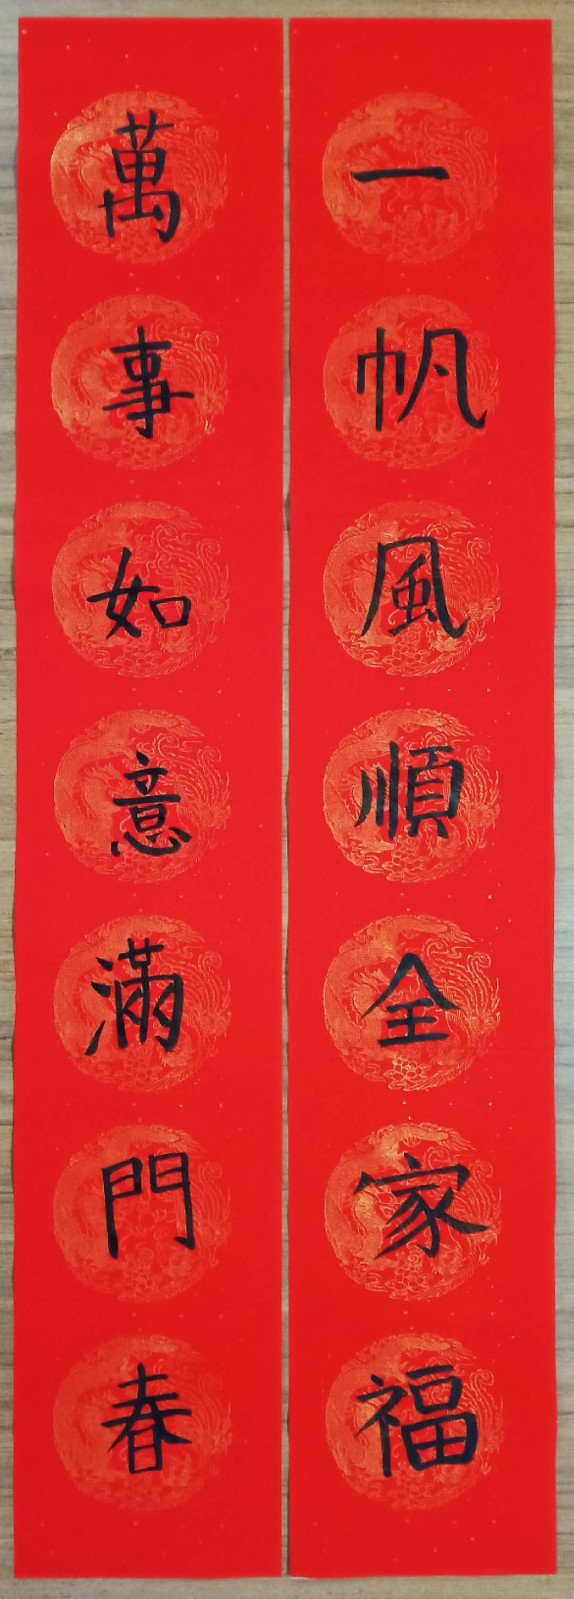 一帆風順全家福
萬事如意滿門春